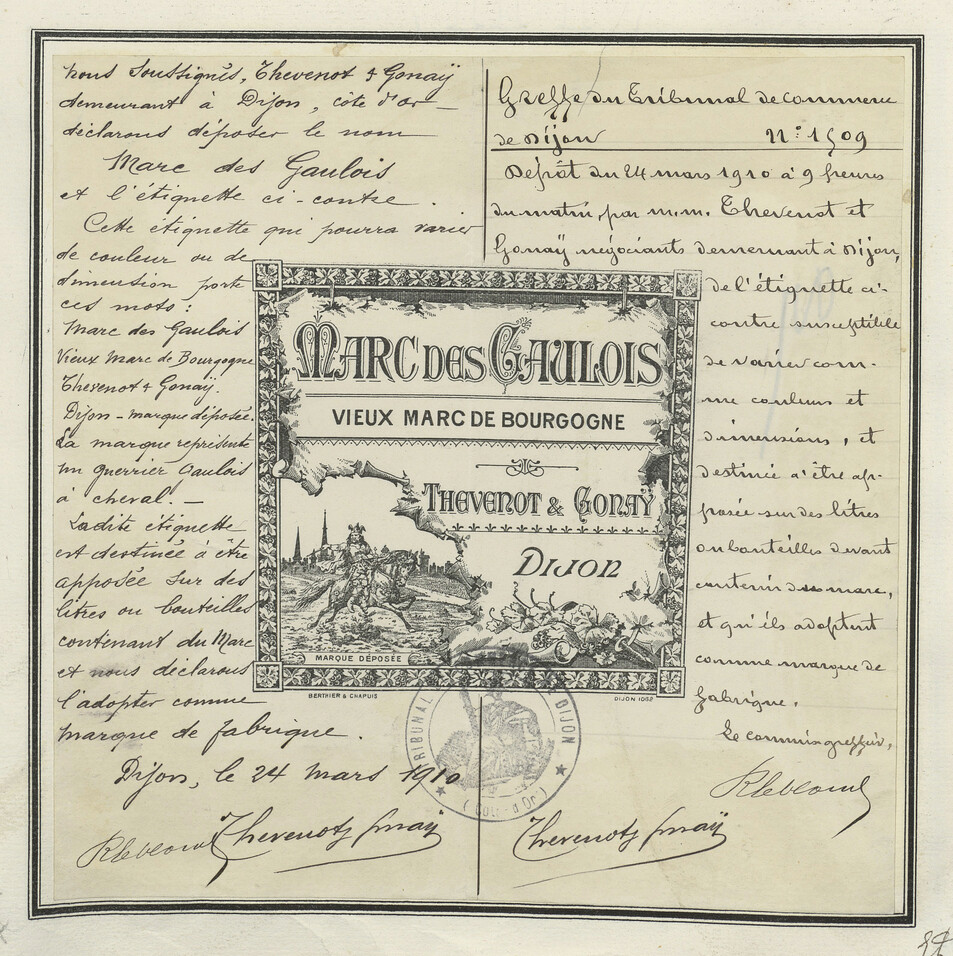 nous soussignés, Thevenot & Gonaÿ
demeurant à Dijon, côte d'or
déclarons déposer le nom
Marc des Gaulois
et l'étiquette ci-contre.
Cette étiquette qui pourra varier
de couleur ou de
dimension porte
ces mots :
Marc des Gaulois
Vieux Marc de Bourgogne
Thevenot & Gonaÿ.
Dijon - marque déposée.
La marque représente
un guerrier Gaulois
à cheval. —
Ladite étiquette
est destinée à être
apposée sur des
litres ou bouteilles
contenant du Marc
et nous déclarons
l'adopter comme
marque de fabrique.
Dijon, le 24 mars 1910
Thevenot & Gonaÿ
MARC DES GAULOIS
VIEUX MARC DE BOURGOGNE
THEVENOT & GONAŸ
DIJON
MARQUE DÉPOSÉE
BERTHIER & CHAPUIS
DIJON
TRIBUNAL DIJON
(Côte-d'Or)
Greffe du Tribunal de Commerce
de Dijon N° 1509
Dépôt du 24 mars 1910 à 9 heures
du matin, par m.m. Thevenot et
Gonaÿ négociants demeurant à Dijon,
de l'étiquette ci-
contre susceptible
de varier com-
me couleurs et
dimensions, et
destinée à être ap-
posée sur des litres
ou bouteilles devant
contenir du marc,
et qu'ils adoptent
comme marque de
fabrique.
Le commis greffier,
Thevenot & Gonaÿ